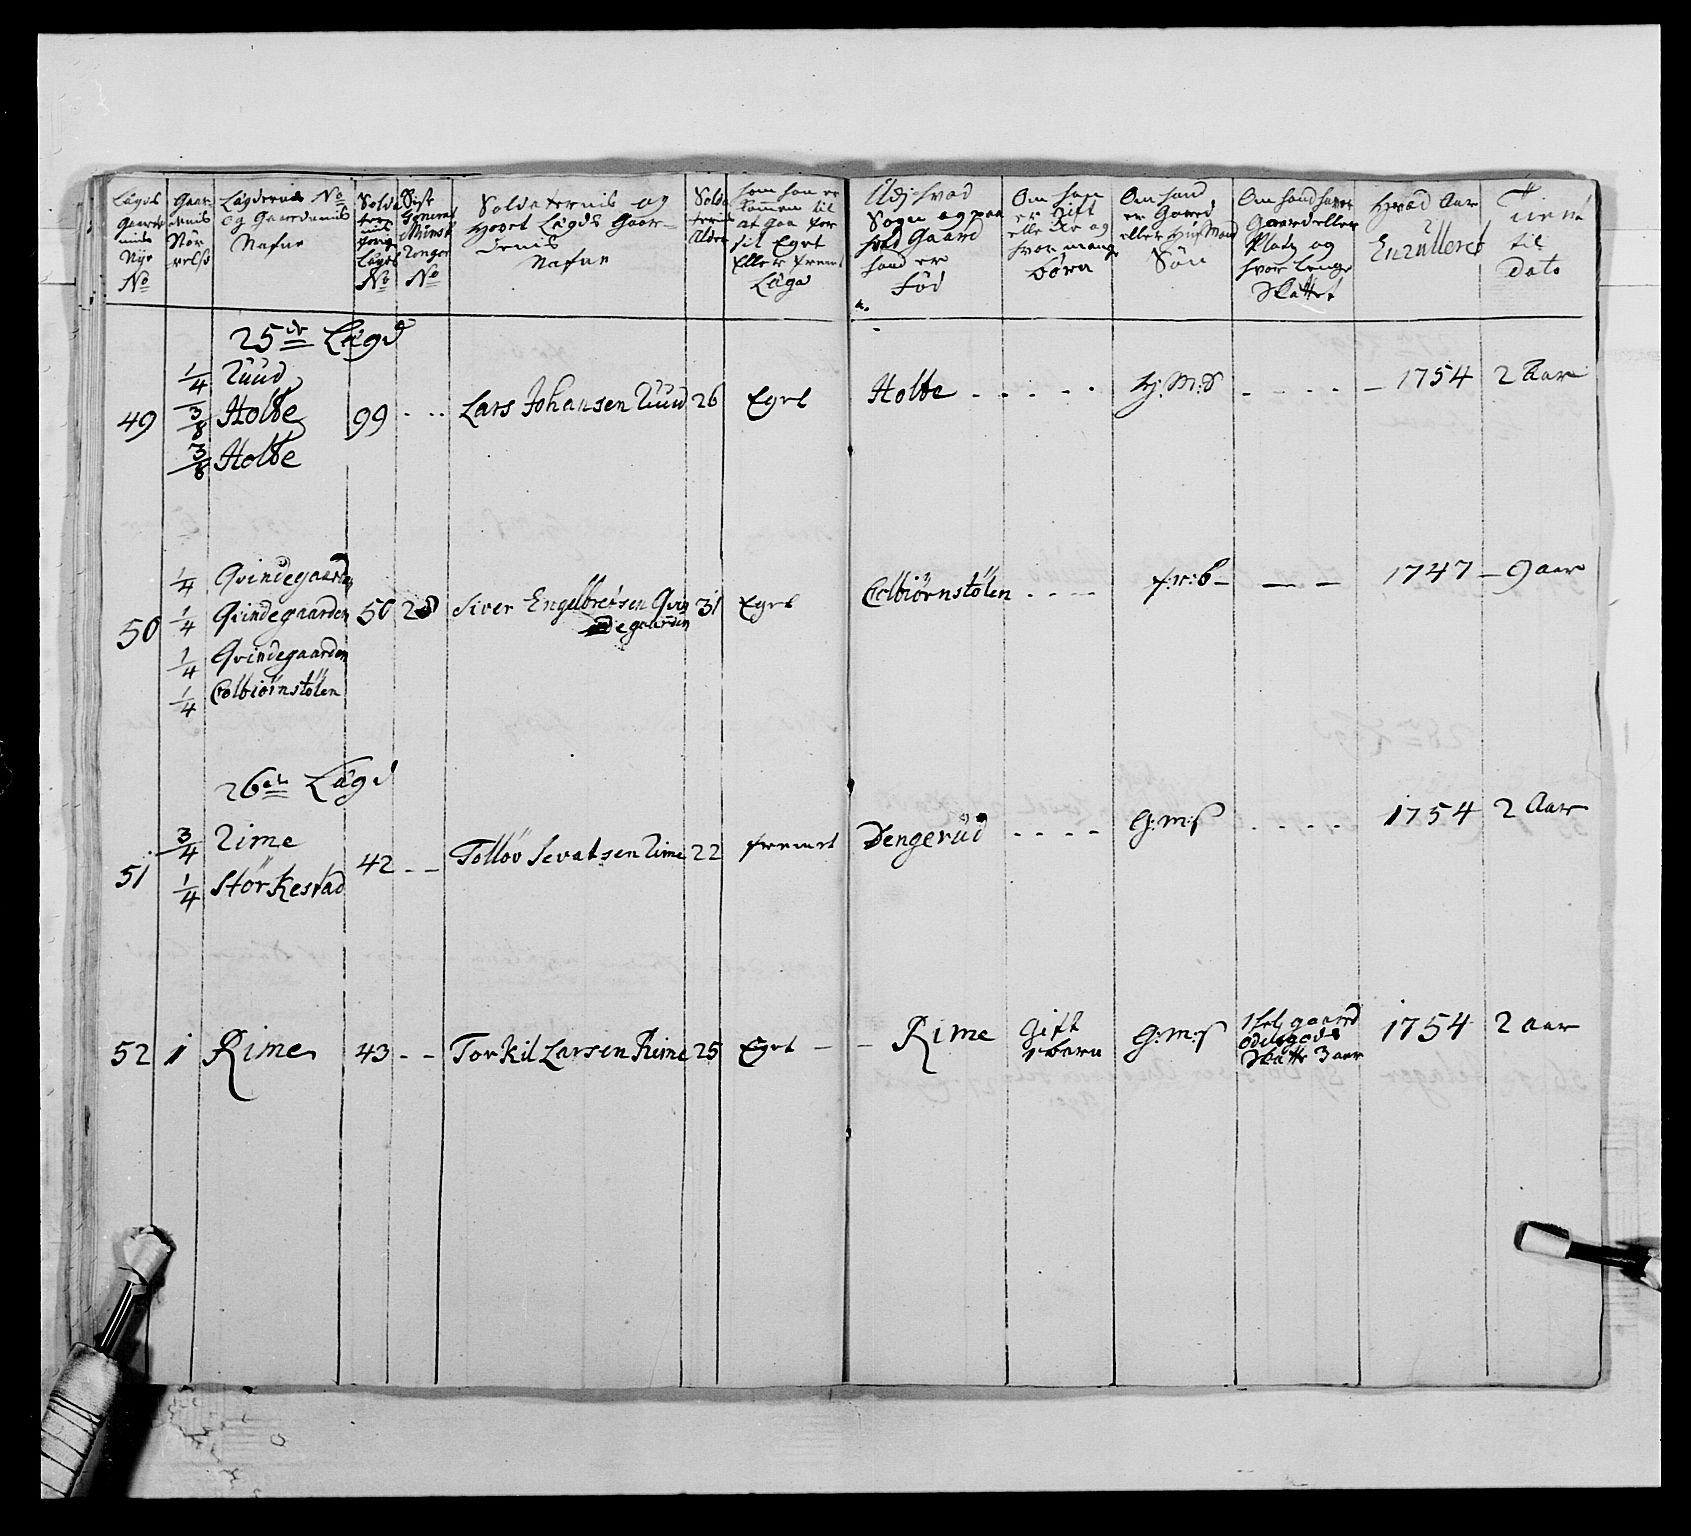 Lægds Gaardenis Nye No | Gaardenis Stör-relse | Lægdernis No og Gaardenis Nafne | Soldaternis forige Lægds No | Siste General Munstringer No | Soldaternis og Hvert Lægds Gaardenis Nafne | Soldaternis Alder | som han er kommen til at gaa for sit Eget Eller fremt Lægd | Udj hvad Sogn og paa hvad Gaard hand er Föd | Om han er Gift eller Eie og hvor mange börn | Om hand er Gaard eller HuusMand Sön | Om hand haver Gaard eller Plads og hvor lenge Skattet | Hvad Aar Enrulleret | Tient til Dato
25de Lægd
1/4 Ruud
49 3/8 Holte 99 - - - Lars Johansen Ruud 26 Eget Holte - - - - H:M:S - - - - - 1754 2 Aar
3/8 Holte
1/4 Qvindegaarden
50 1/4 Qvindegaarden 50 28 Siver Engelbretsen Qvindegaarden 31 Eget Colbiörnstölen - - - - - - - 1747 - 9 aar
1/4 Qvindegaarden
1/4 Colbiörnstölen
26de Lægd
3/4 Rime
51 1/4 Störkestad 42 - - Tollöv Sevatsen Rime 22 fremt Dengerud - - - - G:M:S - - - - 1754 2 Aar
52 1 Rime 43 - - Torkil Larsen Rime 25 Eget - - Rime Gift 1 barn G:M:S 1 hel gaard odelsgods Skatte 3 aar 1754 2 aar